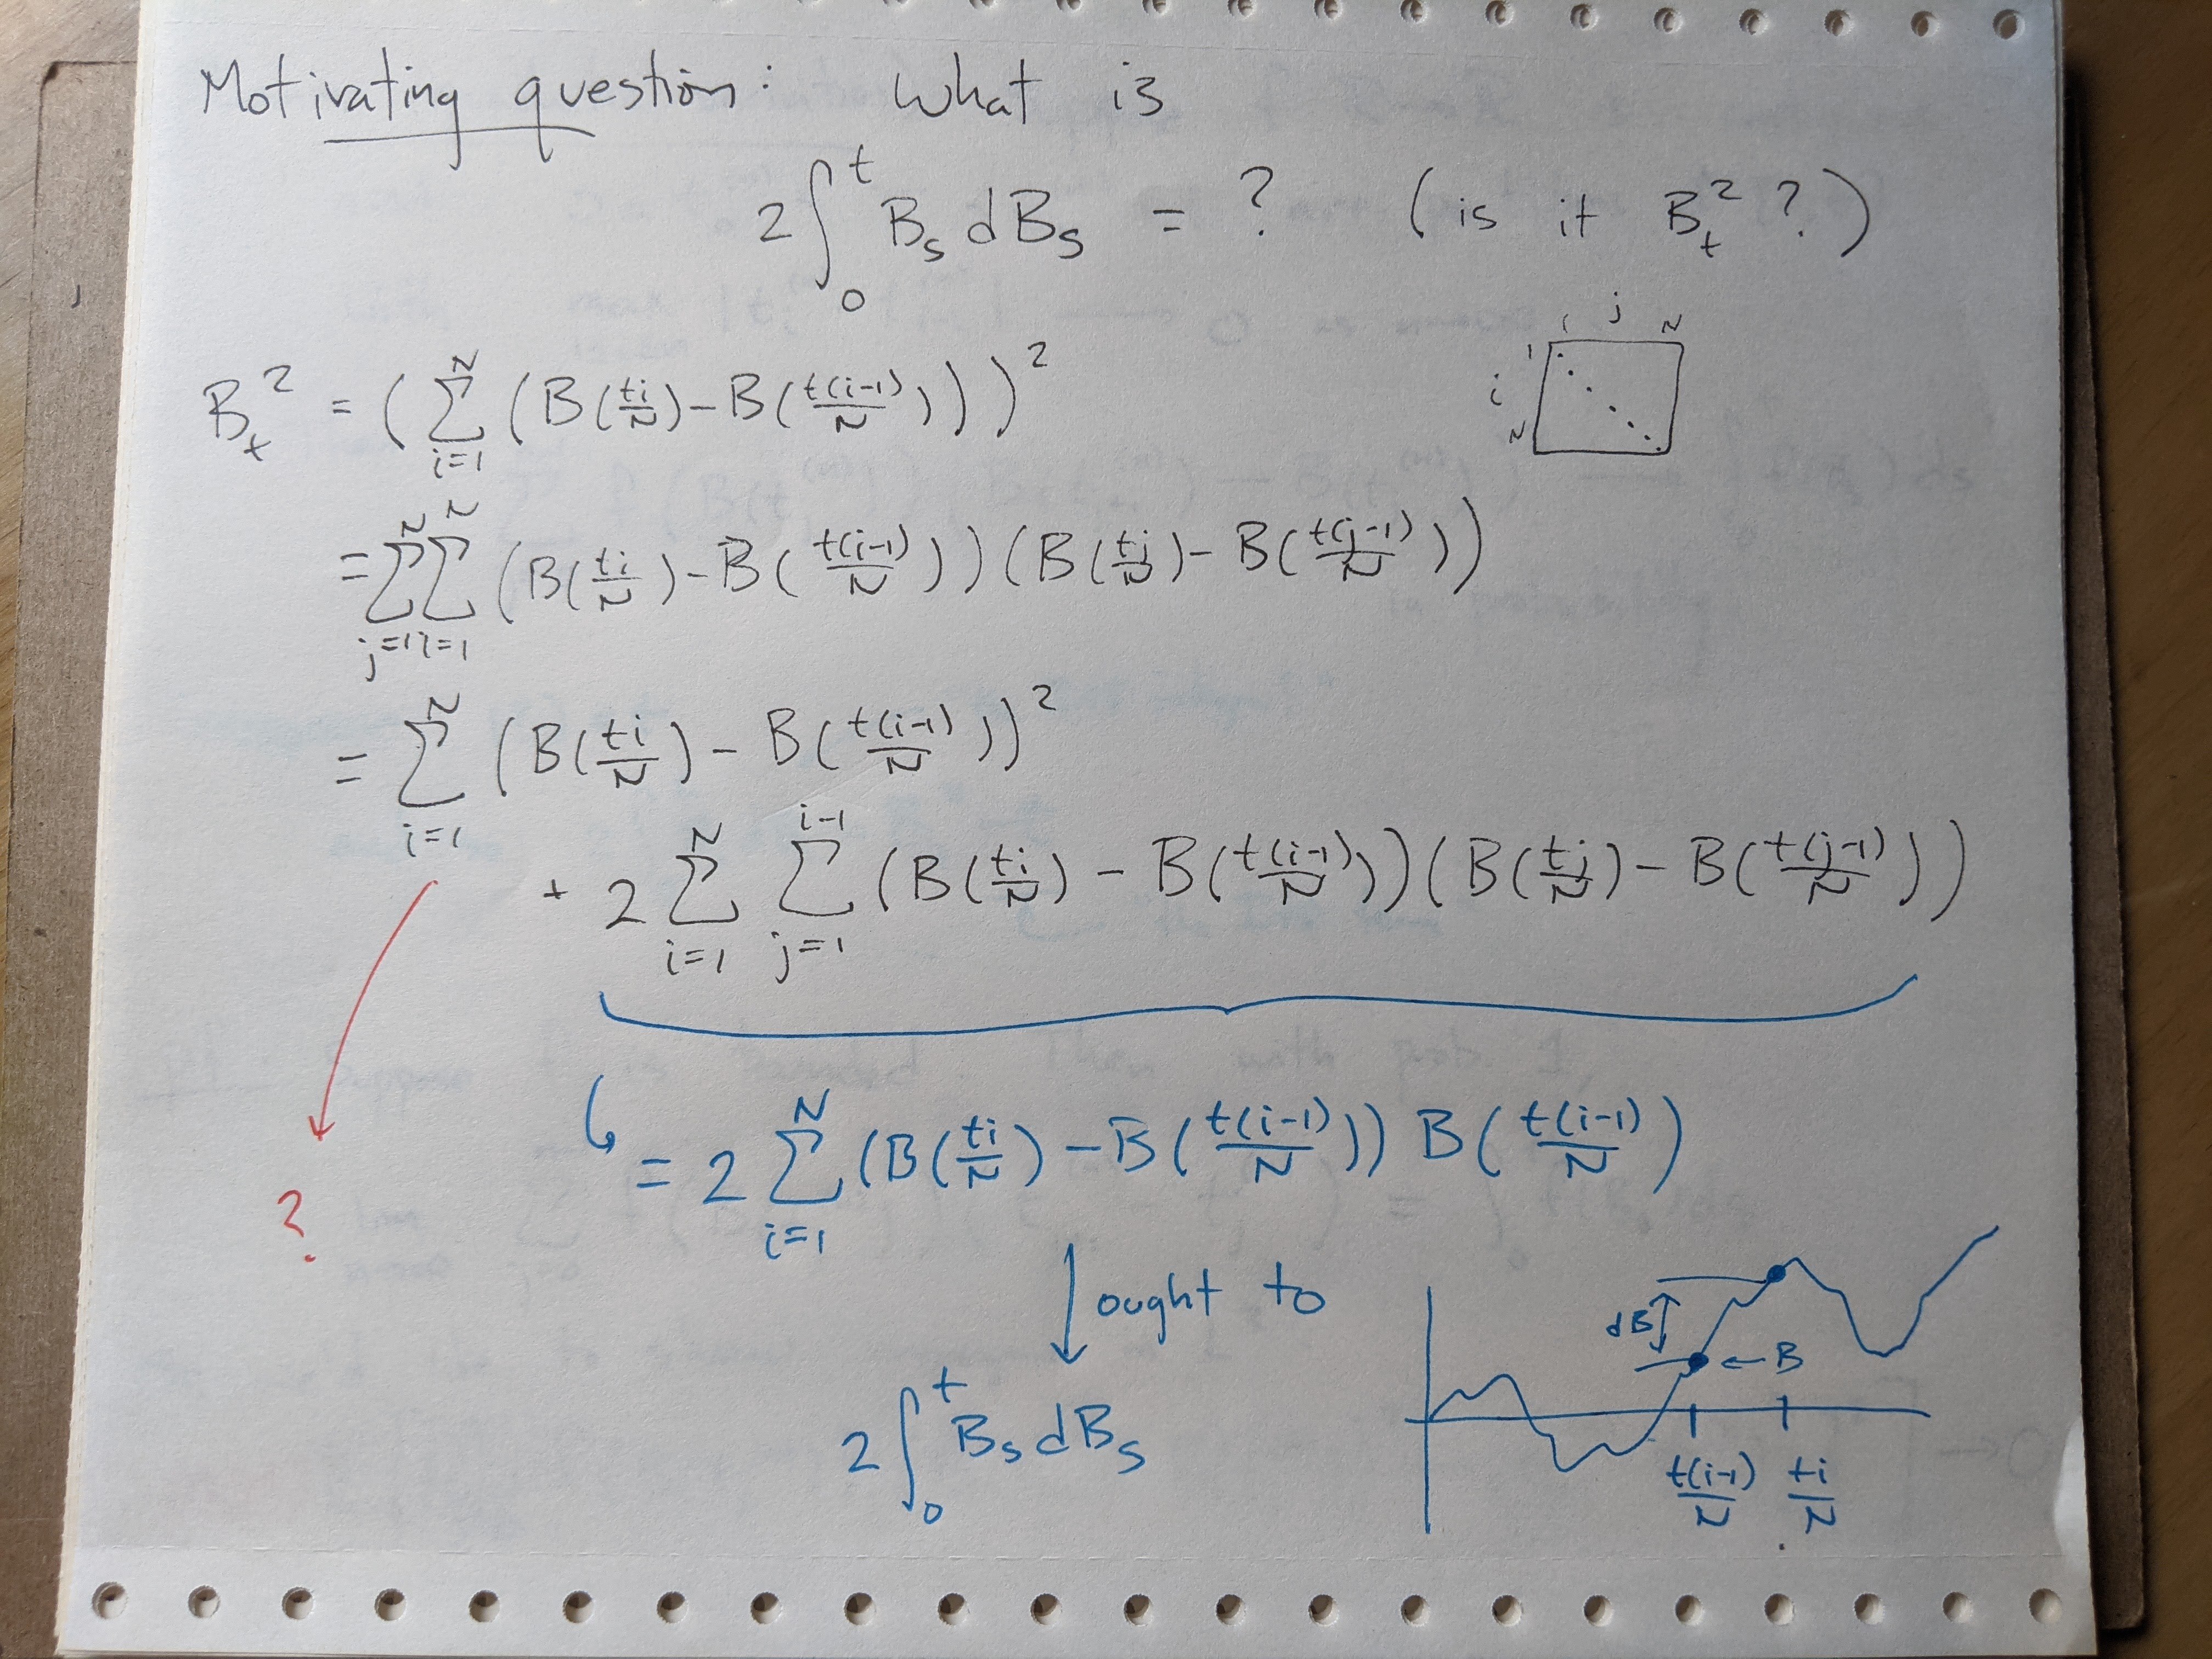 Motivating question: What is
2∫₀ᵗ Bₛ dBₛ = ? (is it Bₜ² ?)
1 j N
1
i
N
Bₜ² = (∑_{i=1}^{N} (B(ti/N) − B(t(i-1)/N)))²
= ∑_{j=1}^{N} ∑_{i=1}^{N} (B(ti/N) − B(t(i-1)/N)) (B(tj/N) − B(t(j-1)/N))
= ∑_{i=1}^{N} (B(ti/N) − B(t(i-1)/N))²
+ 2 ∑_{i=1}^{N} ∑_{j=1}^{i-1} (B(ti/N) − B(t(i-1)/N)) (B(tj/N) − B(t(j-1)/N))
?
= 2 ∑_{i=1}^{N} (B(ti/N) − B(t(i-1)/N)) B(t(i-1)/N)
↓ ought to
2∫₀ᵗ Bₛ dBₛ
dB ← B
t(i-1)/N ti/N